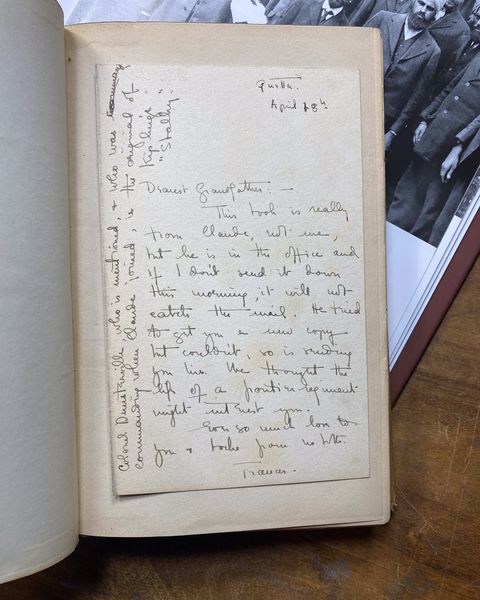 Quetta.
April 28th
Dearest Grandfather: —
This book is really
from Claude, not me,
but he is in the office and
if I don't send it down
this morning, it will not
catch the mail. He tried
to get you a new copy
but couldn't, so is sending
you his. We thought the
life of a frontier regiment
might interest you.
Ever so much love to
you & from us both.
Frances.
Colonel Dunsterville, who is mentioned, & who was
commanding when Claude joined, is the original of
Kipling's
"Stalky".